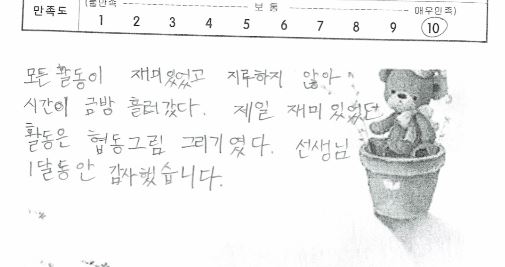 (불만족 보통 매우만족)
만족도 1 2 3 4 5 6 7 8 9 10
모든 활동이 재미있었고 지루하지 않아
시간이 금방 흘러갔다. 제일 재미있었던
활동은 협동그림 그리기였다. 선생님
1달동안 감사했습니다.